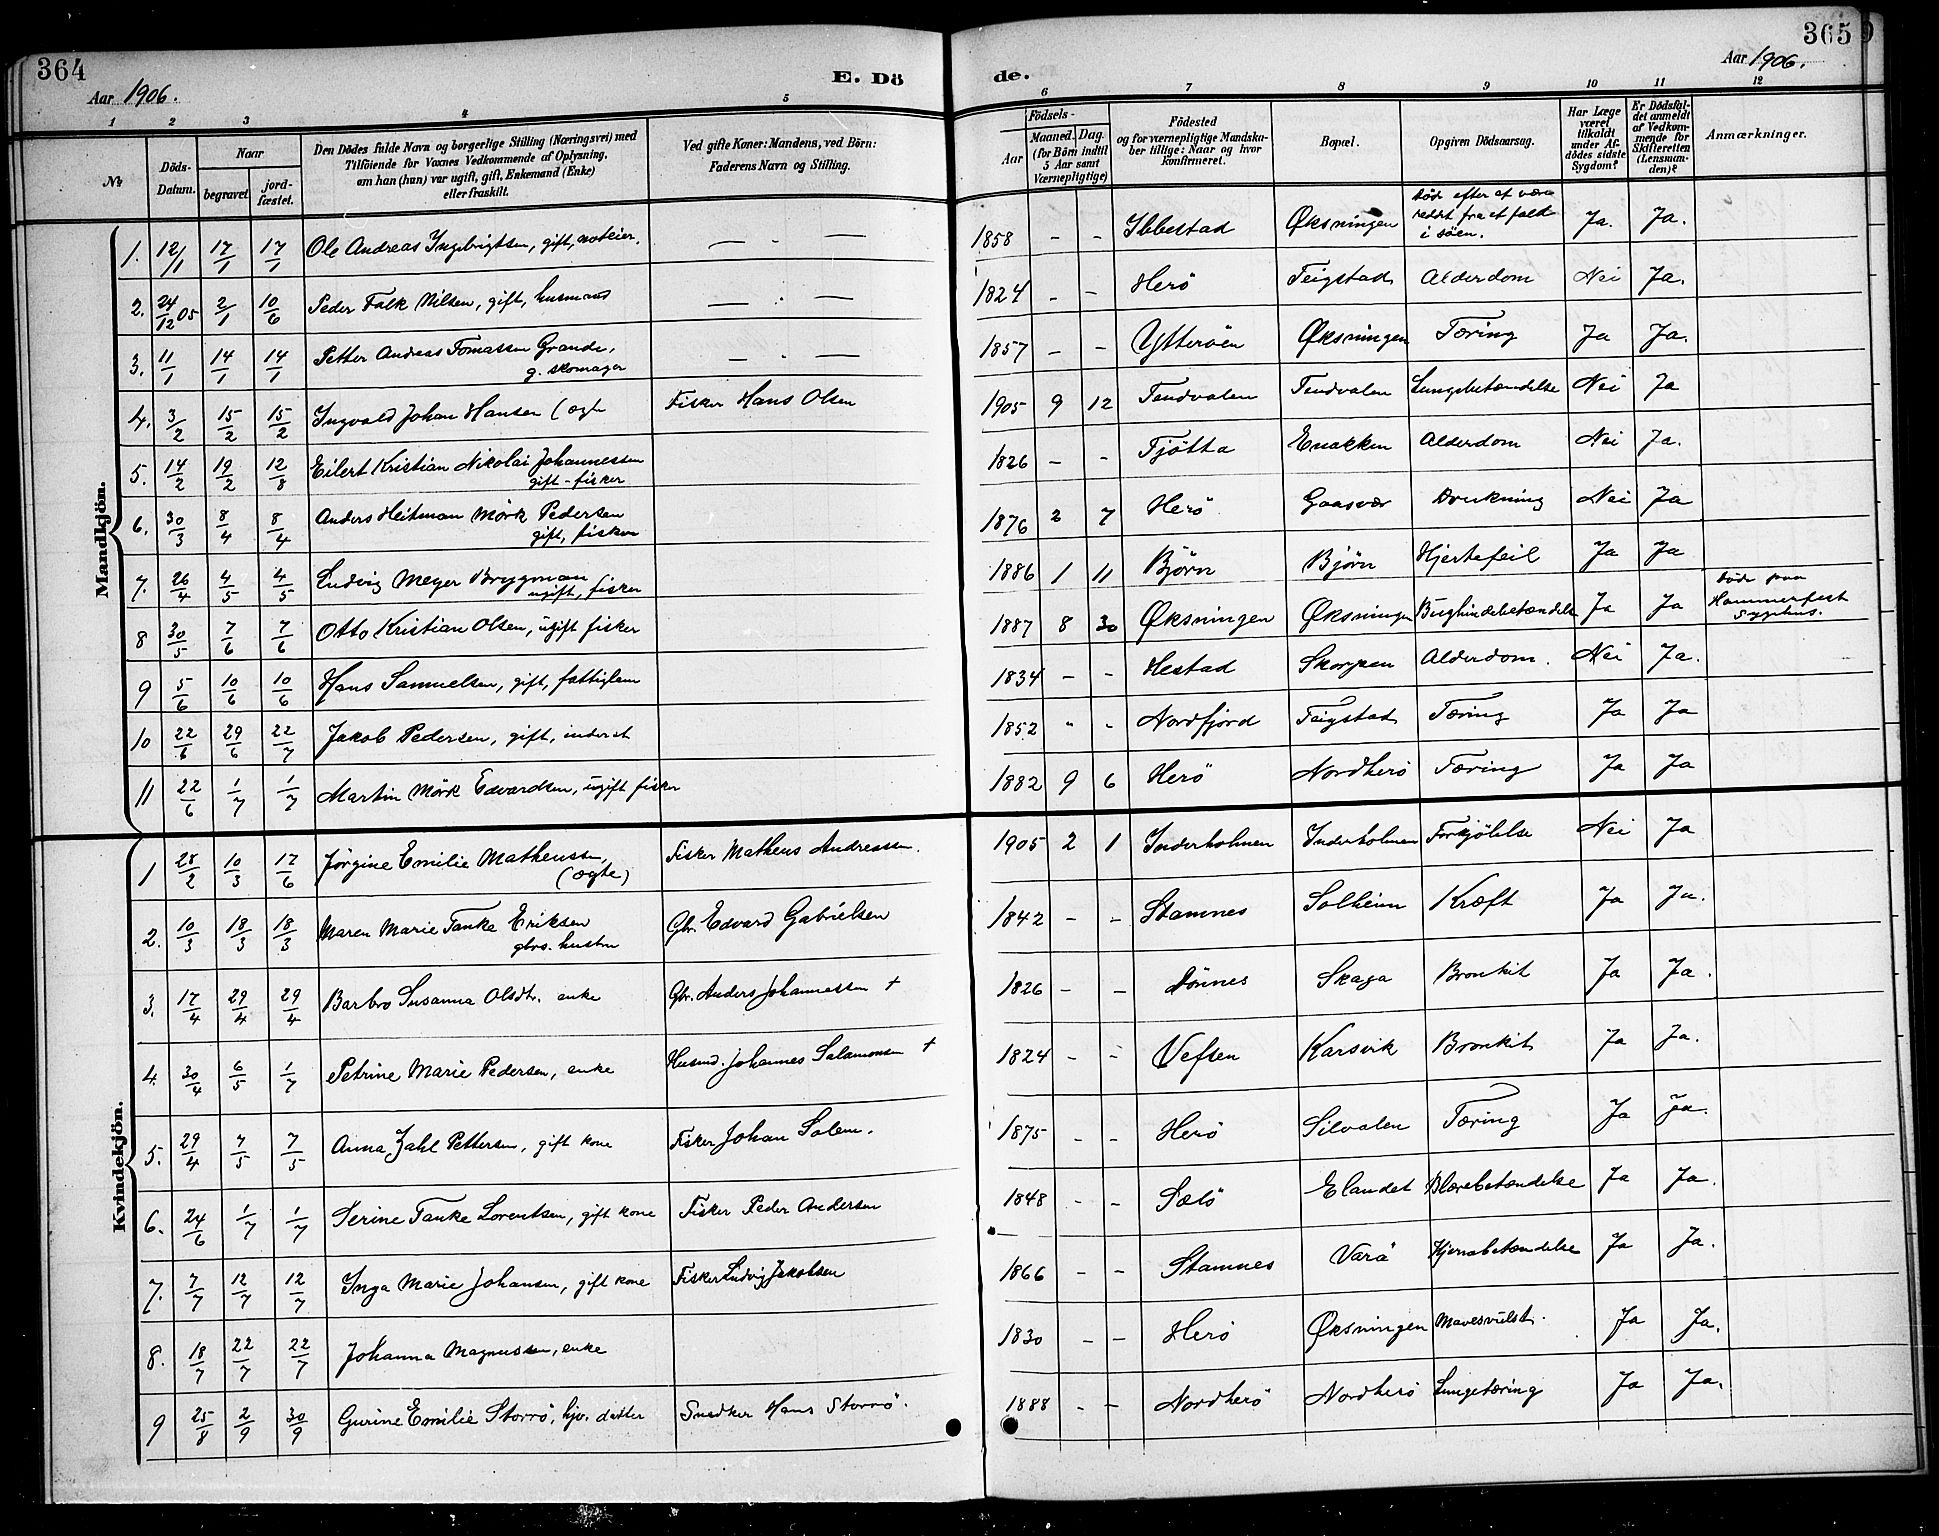 364
Aar 1906.
E. Dö
de.
365
Aar 1906.
1 2 3 4 5 6 7 8 9 10 11 12
№
Döds-Datum.
Naar
begravet.
jord-fæstet.
Den Dödes fulde Navn og borgerlige Stilling (Næringsvei) med
Tilföiende for Voxnes Vedkommende af Oplysning,
om han (hun) var ugift, gift, Enkemand (Enke)
eller fraskilt.
Ved gifte Koner: Mandens, ved Börn:
Faderens Navn og Stilling.
Födsels-
Aar
Maaned.
Dag.
(for Börn indtil
5 Aar samt
Værnepligtige)
Födested
og for værnepligtige Mandska-
ber tillige: Naar og hvor
konfirmeret.
Bopæl.
Opgiven Dödsaarsag.
Har Læge
været
tilkaldt
under Af-
dödes sidste
Sygdom?
Er Dödsfal-
det anmeldt
af Vedkom-
mende for
Skifteretten
(Lensman-
den)?
Anmærkninger.
Mandkjön.
1. 12/1 17/1 17/1 Ole Andreas Ingebrigtsen, gift, noteier. — . — 1858 - - Ibbestad Øksningen död efter at være reddet fra et falk i söen. Ja. Ja.
2. 24/12 05 2/1 10/6 Peder Falk Nilsen, gift, husmand — . — 1824 - - Herö Teigstad Alderdom Nei Ja.
3. 11/1 14/1 14/1 Petter Andreas Tomassen Grande, g. skomager — . — 1857 - - Ytteröen Øksningen Tæring Ja Ja.
4. 3/2 15/2 15/2 Ingvald Johan Hansen (ægte Fisker Hans Olsen 1905 9 12 Tendvalen Tendvalen Lungebetændelse Nei Ja
5. 14/2 19/2 12/8 Eilert Kristian Nikolai Johannessen gift - fisker 1826 - - Tjötta Enakken Alderdom Nei Ja.
6. 30/3 8/4 8/4 Anders Heitman Mörk Pedersen gift, fisker 1876 2 7 Herö Gaasvær Drukning Nei Ja
7. 26/4 4/5 4/5 Ludvig Meyer Brygman ugift, fisker 1886 1 11 Björn Björn Hjertefeil Ja Ja
8 30/5 7/6 7/6 Otto Kristian Olsen, ugift fisker 1887 8 30 Øksningen Øksningen Bughindebetændelse Ja Ja döde paa Hammerfest Sygehus.
9 5/6 10/6 10/6 Hans Samuelsen, gift, fattiglem 1834 - - Hestad Skorpen Alderdom. Nei Ja.
10 22/6 29/6 22/7 Jakob Pedersen, gift, inderst 1852 " - Nordfjord Teigstad Tæring Ja Ja
11 22/6 1/7 1/7 Martin Mörk Edvardsen, ugift fisker 1882 9 6 Herö Nordherö Tæring Ja Ja
Kvindekjön.
1 28/2 10/3 17/6 Jörgine Emilie Matheussen, (ægte) Fisker Matheus Andreassen. 1905 2 1 Inderholmen Inderholmen Forkjölelse Nei Ja
2. 10/3 18/3 18/3 Maren Marie Tanke Eriksen gbrs. hustru Gbr. Edvard Gabrielsen 1842 - - Stamnes Solheim Kræft Ja Ja.
3. 17/4 29/4 29/4 Barbro Susanna Olsdtr. enke Gbr. Anders Johannessen + 1826 - - Dönnes Skaga Bronkit Ja Ja.
4. 30/4 6/5 1/7 Petrine Marie Pedersen, enke Husmd. Johannes Salamonsen + 1824 - - Vefsen Karsvik Bronkit Ja Ja.
5. 29/4 7/5 7/5 Anna Zahl Pettersen, gift kone Fisker Johan Salem. 1875 - - Herö Silvalen Tæring Ja Ja.
6. 24/6 1/7 1/7 Serine Tanke Lorentsen, gift kone Fisker Peder Andersen 1848 - - Sælö Elandet Blærebetændelse Ja Ja.
7. 7/7 12/7 12/7 Inga Marie Johansen, gift kone Fisker Ludvig Jakobsen 1866 - - Stamnes Varö Hjernebetændelse Ja Ja.
8. 18/7 22/7 22/7 Johanna Magnussen, enke 1830 - - Herö Øksningen Mavesvulst. Ja Ja.
9 25/8 2/9 30/9 Gurine Emilie Storrö, hjv. datter Snedker Hans Storrö. 1888 - - Nordherö Nordherö Lungetæring Ja Ja.